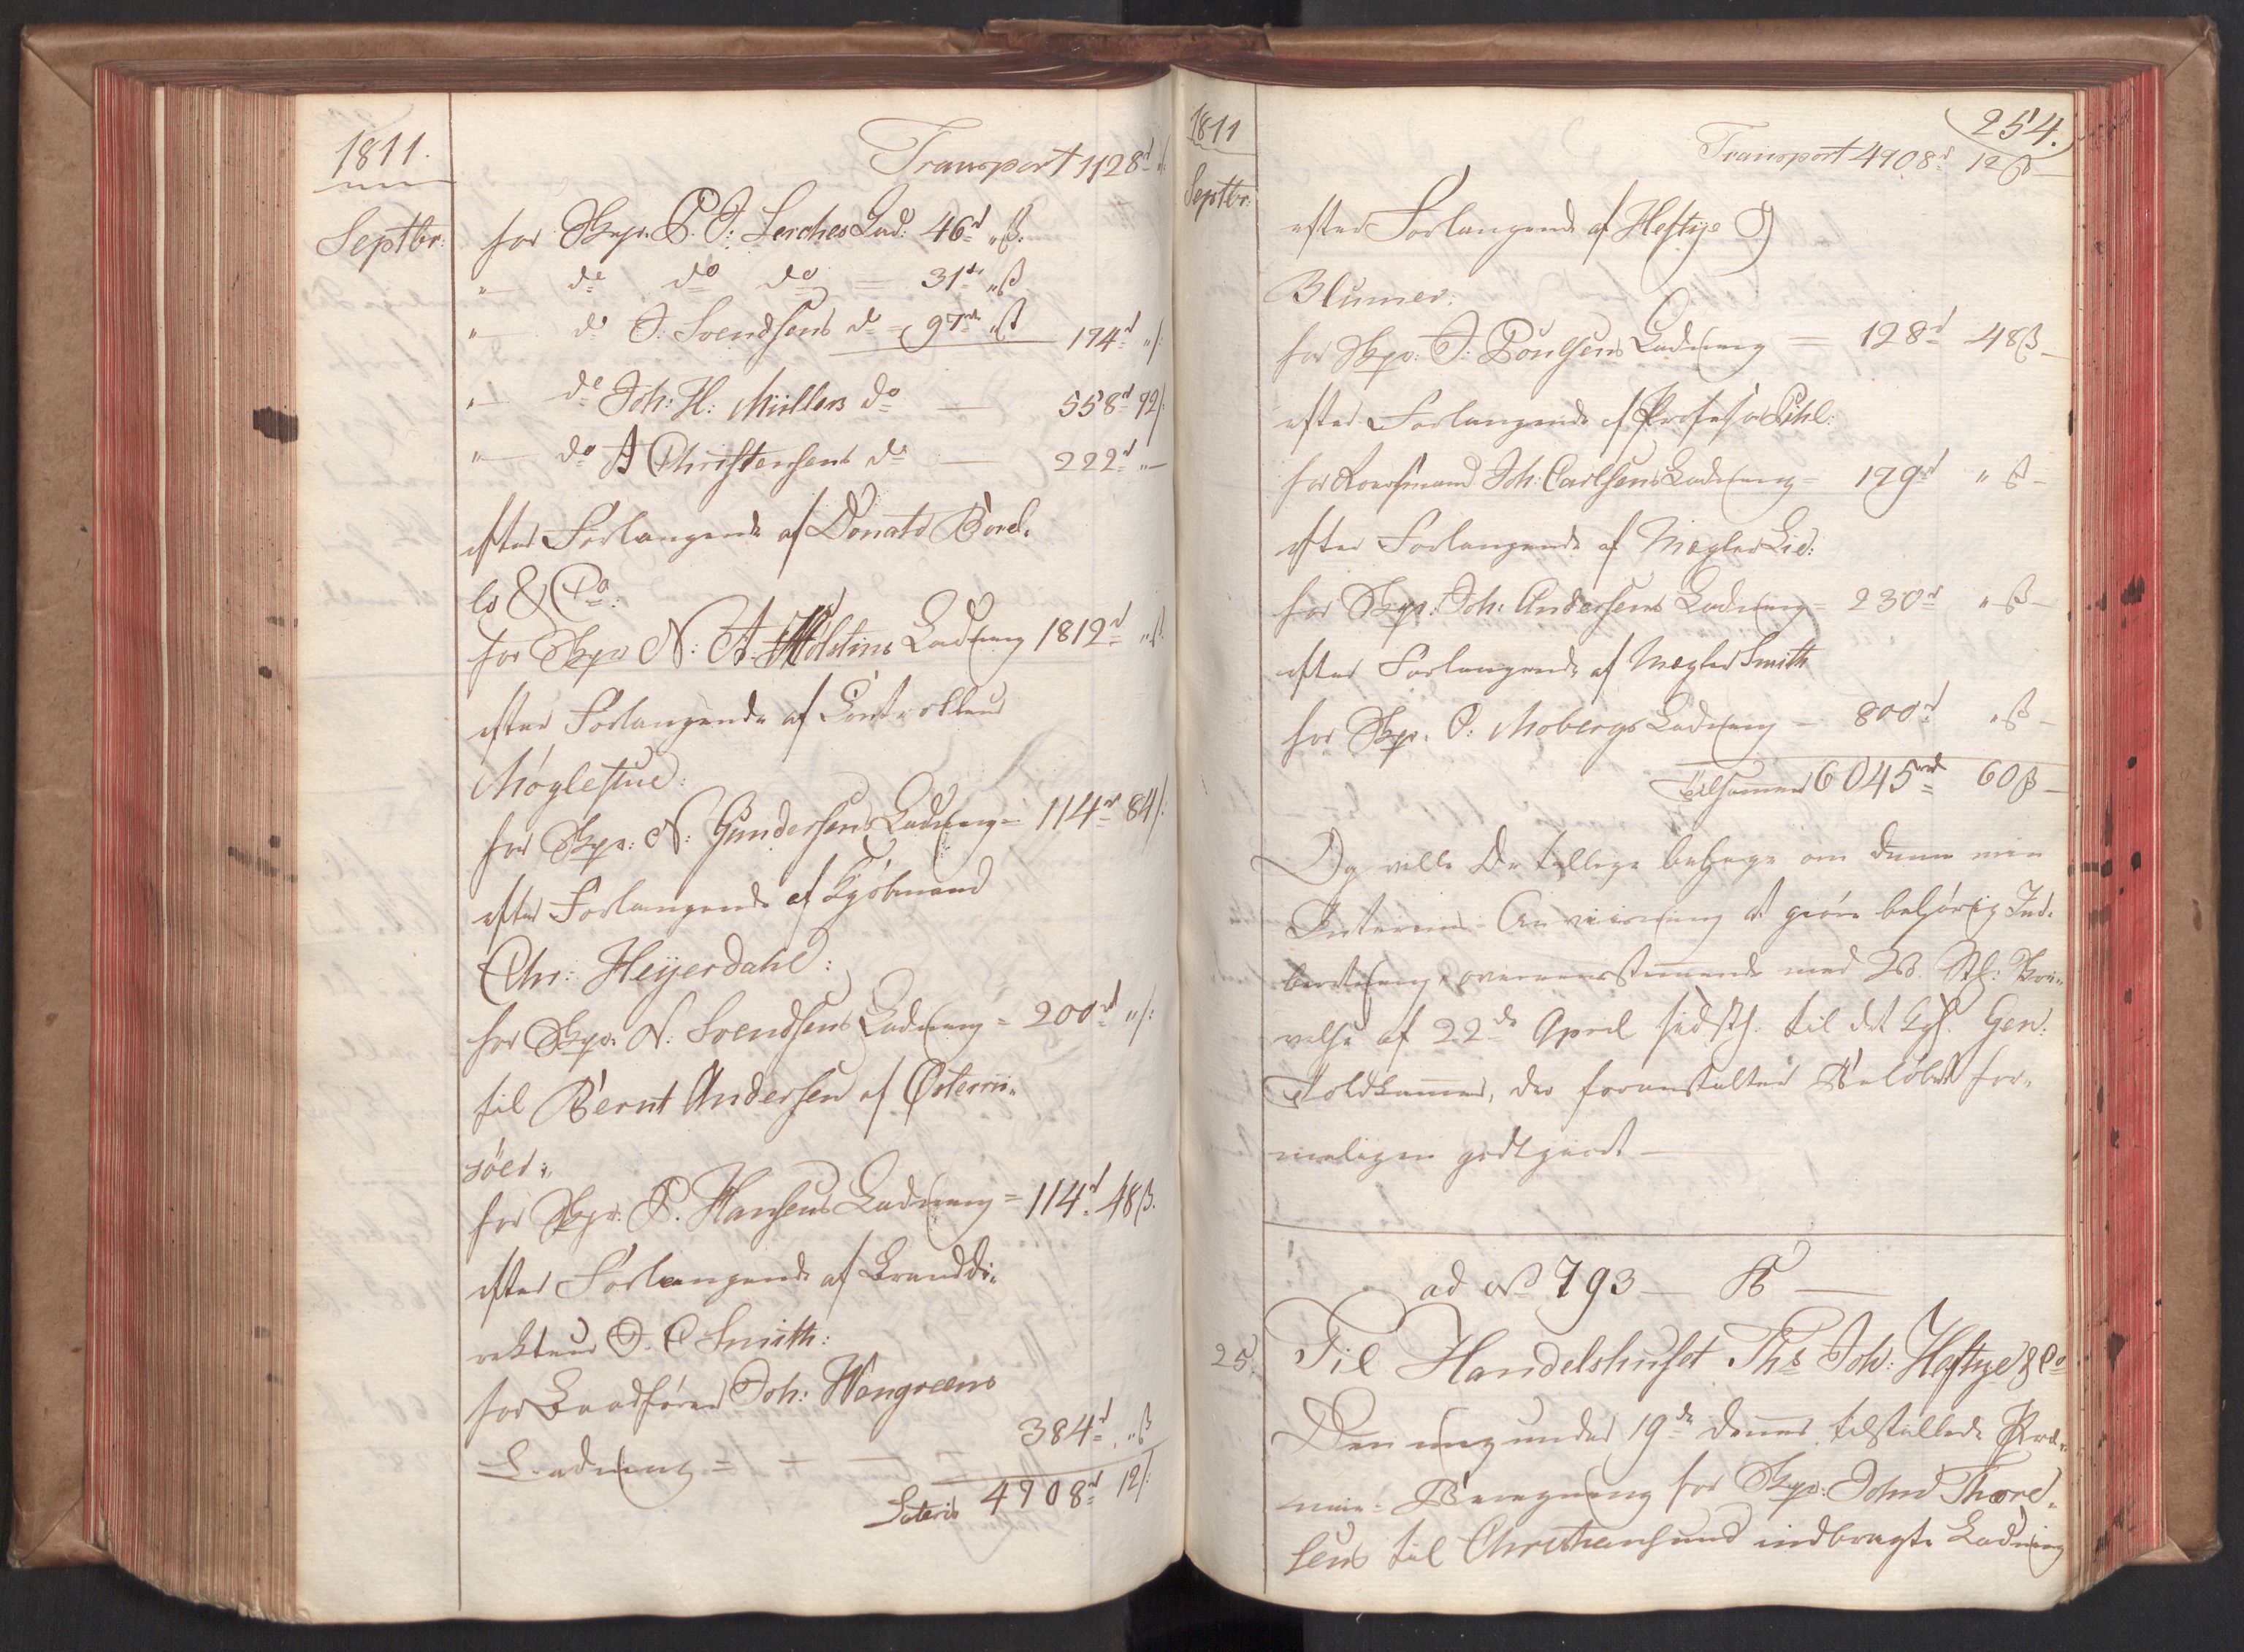 1811.
Septbr:
Transport 1128 rd "/:
for Skpr. P. J: Lerches Lad: 46 rd " ß.
" — do do do = 31 rd " ß
" — do J. Svendsens do = 97 rd " ß 174 rd "/:
" — do Joh: H: Müllers do — 558 rd 92/:
" — do A Christensens do — 222 rd " —
efter Forlangende af Donato Borel-
lo & Co:
for Skpr N: A. Holstins Ladning 1812 rd " ß.
efter Forlangende af Controlleur
Møglestue:
for Skpr: N: Gundersens Ladning = 114 rd 84/:
efter Forlangende af Kjøbmand
Chr: Heyerdahl:
for Skpr. N: Svendsens Ladning = 200 rd "/:
til Bernt Andersen af Østerri-
søer:
for Skpr. P. Hansens Ladning = 114 rd 48 ß.
efter Forlangende af Branddi-
rekteur J. C Smith:
for Baadfører Joh: Wengreens
Ladning = — 384 rd " ß
Lateris 4908 rd 12/:
1811
Septbr.
254.
Transport 4908 rd 12 ß —
efter Forlangende af Heftye &
Blumer:
for Skpr. J: Poulsens Ladning = 128 rd 48 ß —
efter Forlangende af Professor Pihl:
for Koersmand Joh: Carlsens Ladning = 179 rd " ß —
efter Forlangende af Mægler Lie:
for Skpr. Joh: Andersens Ladning = 230 rd " ß —
efter Forlangende af Mægler Smith
for Skpr. P: Mobergs Ladning — 800 rd " ß —
Tilsammen 6045 rd 60 ß —
Og ville De tillige behage om denne min
Interims-Anviisning at giøre behørig Ind-
beretning, overeensstemmende med Skri-
velse af 22de April sidstl. til det Kgl. Gen:
Toldkammer, der foranstalter Beløbet for-
meligen godtgiort —
ad No 793 — B —
25. Til Handelshuset Ths Joh: Heftye & Co
Den mig under 19de dennes tilstillede Præ-
mie-Beregning for Skpr. John Thord-
sens til Christiansund indbragte Ladning